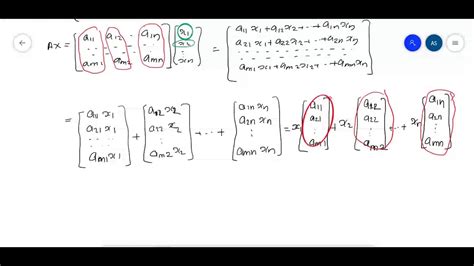 AX = [a11 a12 .. a1n; ... ... ...; am1 am2 amn] [x1; x2; ⋮; xn] = [a11 x1 + a12 x2 + .. + a1n xn; a21 x1 + a22 x2 + .. + a2n xn; ...; am1 x1 + am2 x2 + .. + amn xn]
AS
= [a11 x1; a21 x1; ⋮; am1 x1] + [a12 x2; a22 x2; ⋮; am2 x2] + ... + [a1n xn; a2n xn; ⋮; amn xn] = x1 [a11; a21; ⋮; am1] + x2 [a12; a22; ⋮; am2] + .. + xn [a1n; a2n; ⋮; amn]